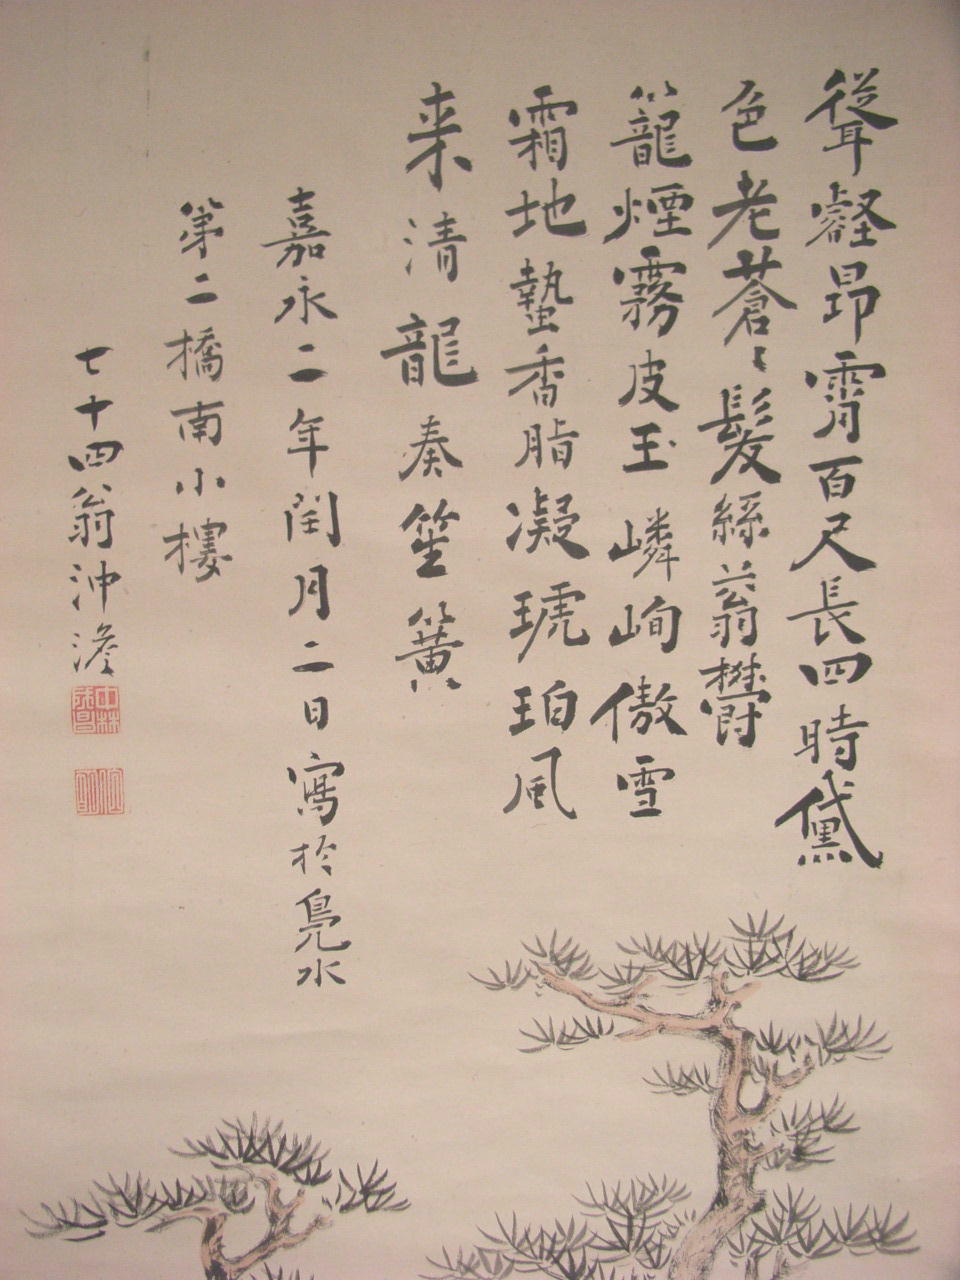 聳壑昂霄百尺長四時黛
色老蒼〻髮絲蓊欝
籠煙霧皮玉嶙峋傲雪
霜地蟄香脂凝琥珀風
来清龍奏笙簧
嘉永二年閏月二日寫於鳧水
第二橋南小樓
七十四翁沖澹